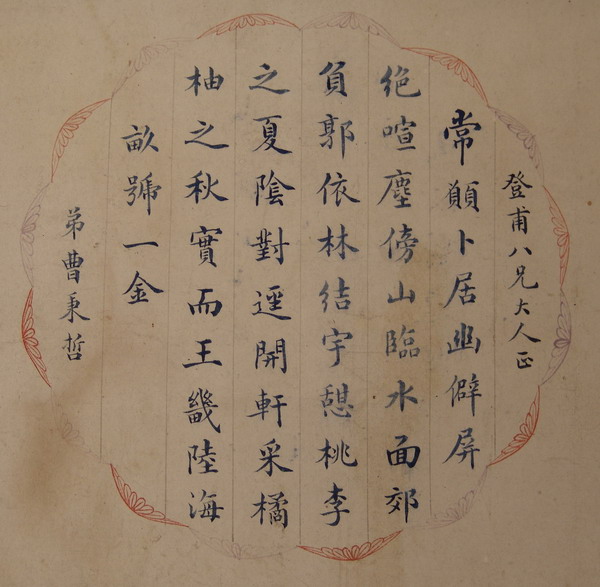 登甫八兄大人正
常願卜居幽僻屏
絶喧塵傍山臨水面郊
負郭依林結宇憩桃李
之夏陰對逕開軒采橘
柚之秋實而王畿陸海
畝號一金
弟曹秉哲